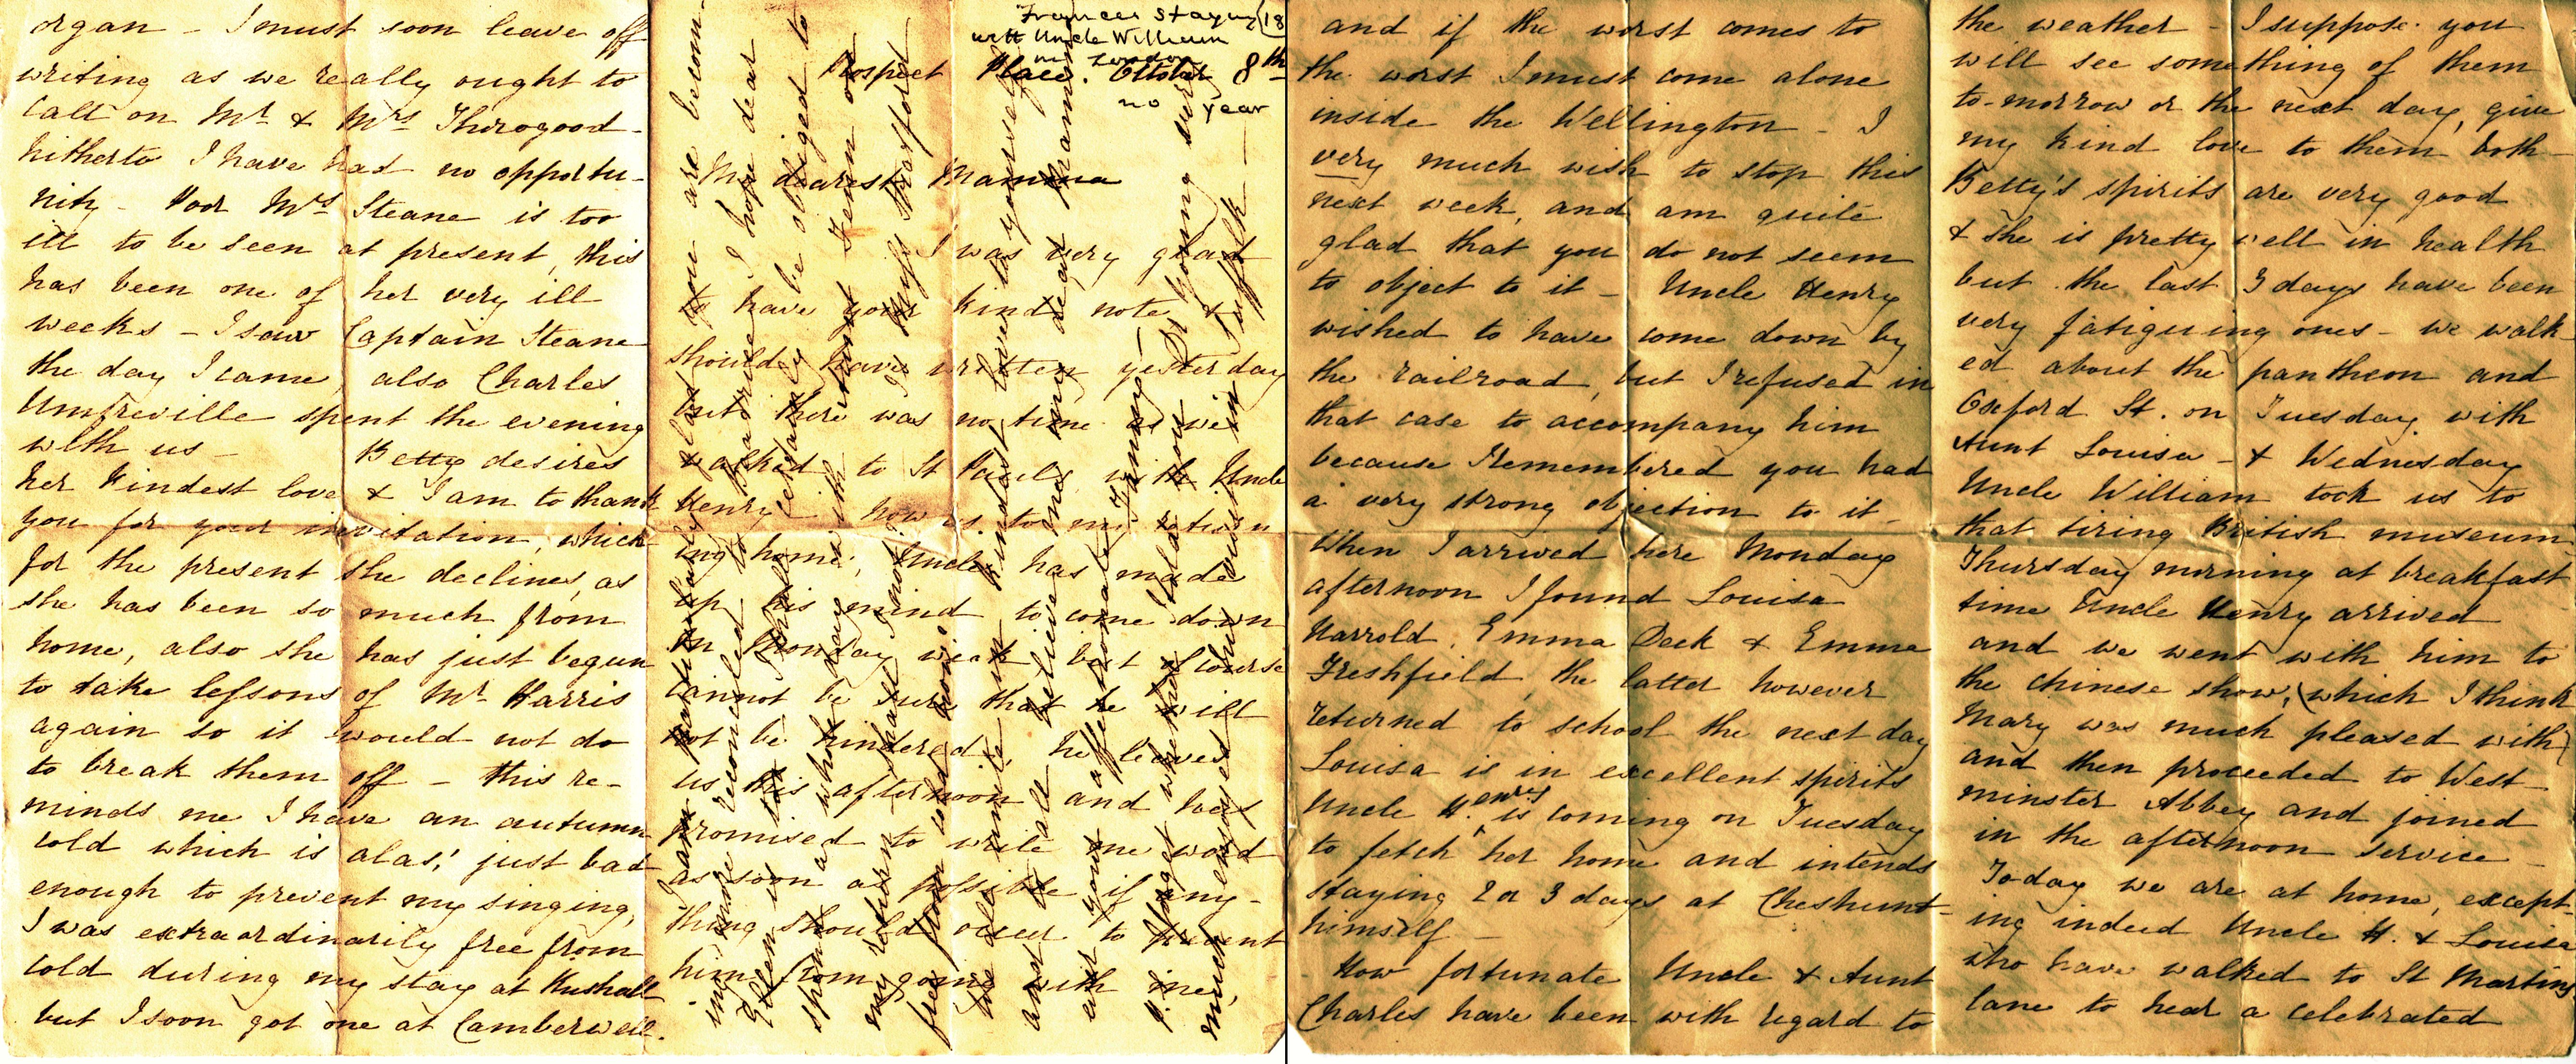 Frances Staying 18
with Uncle William
in London
Prospect Place. October 8th
no year
My dearest Mamma
I was very glad
to have your kind note &
should have written yesterday
but there was no time as we
walked to St Pauls with Uncle
Henry. now as to my return
ing home, Uncle has made
up his mind to come down
on Monday week, but of course
cannot be sure that he will
not be hindered, he leaves
us this afternoon and has
promised to write me word
as soon as possible if any-
thing should occur to prevent
him from going with me,
and if the worst comes to
the worst I must come alone
inside the Wellington - I
very much wish to stop this
next week, and am quite
glad that you do not seem
to object to it - Uncle Henry
wished to have come down by
the railroad, but I refused in
that case to accompany him
because I remembered you had
a very strong objection to it -
When I arrived here Monday
afternoon I found Louisa
Harrold, Emma Deck & Emma
Freshfield, the latter however
returned to school the next day
Louisa is in excellent spirits
Uncle Henry is coming on Tuesday
to fetch her home and intends
staying 2 or 3 days at Cheshunt -
himself -
How fortunate Uncle & Aunt
Charles have been with regard to
the weather - I suppose you
will see something of them
to-morrow or the next day, give
my kind love to them both -
Betty's spirits are very good
& she is pretty well in health
but the last 3 days have been
very fatiguing ones - we walk-
ed about the pantheon and
Oxford St. on Tuesday with
Aunt Louisa - & Wednesday
Uncle William took us to
that tiring British museum.
Thursday morning at breakfast
time Uncle Henry arrived
and we went with him to
the chinese show, (which I think
Mary was much pleased with)
and then proceeded to West-
minster Abbey and joined
in the afternoon service -
Today we are at home, except-
ing indeed Uncle H. & Louisa
who have walked to St Martins
lane to hear a celebrated
organ - I must soon leave off
writing as we really ought to
call on Mr & Mrs Thorogood -
hitherto I have had no opportu-
nity - Poor Mrs Steane is too
ill to be seen at present, this
has been one of her very ill
weeks - I saw Captain Steane
the day I came, also Charles
Umfreville spent the evening
with us - Betty desires
her kindest love & I am to thank
you for your invitation, which
for the present she declines, as
she has been so much from
home, also she has just begun
to take lessons of Mr Harris
again so it would not do
to break them off - this re-
minds me I have an autumn
cold which is alas! just bad
enough to prevent my singing,
I was extraordinarily free from
cold during my stay at
but I soon got one at Camberwell.
I am particularly glad you are becom-
ing more reconciled to I hope dear
Ellen is too. I shall certainly be obliged to
spend a whole day with Aunt Fenn on
my return shall I not Miss
free from cold now.
We all unite in kindest love to yourself
and to all believe me my dear Mamma
ever your affectionate Fanny
P.S. I forget whether I told you Dr Young very
much enjoyed his visit in Suffolk -